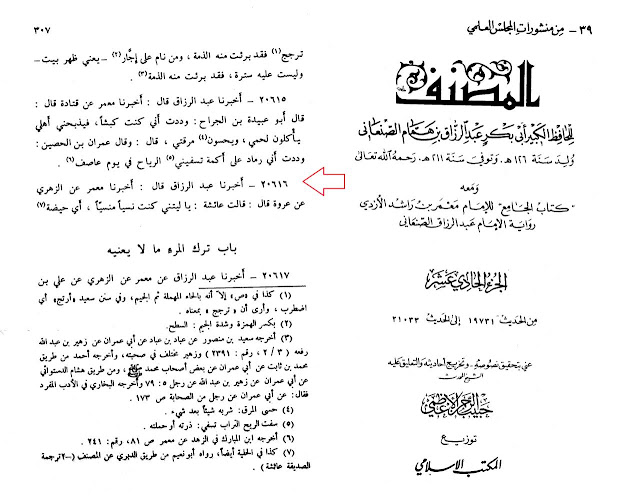 ٣٩ - من منشورات المجلس العلمي
المصنف
للحافظ الكبير أبي بكر عبد الرزاق بن همام الصنعاني
ولد سنة ١٢٦ هـ. وتوفي سنة ٢١١ هـ. رحمه الله تعالى
ومعه
" كتاب الجامع " للإمام معمر بن راشد الأزدي
رواية الإمام عبد الرزاق الصنعاني
الجزء الحادي عشر
من الحديث ١٩٧٣١ إلى الحديث ٢١٠٣٣
عني بتحقيق نصوصه - وتخريج أحاديثه والتعليق عليه
الشيخ المحدث
حبيب الرحمن الأعظمي
توزيع
المكتب الإسلامي
٣٠٧
ترجج (١) فقد برئت منه الذمة ، ومن نام على إجّار (٢) – يعني ظهر بيت –
وليست عليه سترة ، فقد برئت منه الذمة (٣) .
٢٠٦١٥ – أخبرنا عبد الرزاق قال : أخبرنا معمر عن قتادة قال :
قال أبو عبيدة بن الجراح : وددت أني كنت كبشاً ، فيذبحني أهلي
يأكلون لحمي ، ويحسون (٤) مرقتي ، قال : وقال عمران بن الحصين :
وددت أني رماد على أكمة تسفيني (٥) الرياح في يوم عاصف (٦) .
٢٠٦١٦ – أخبرنا عبد الرزاق قال : أخبرنا معمر عن الزهري
عن عروة قال : قالت عائشة : يا ليتني كنت نسياً منسيّاً ، أي حيضة (٧)
باب ترك المرء ما لا يعنيه
٢٠٦١٧ – أخبرنا عبد الرزاق عن معمر عن الزهري عن علي بن
(١) كذا في «ص» إلا أنه بالحاء المهملة ثم الجيم، وفي سنن سعيد «ارتج» أي
اضطرب ، وأرى أن « ترجج » بمعناه .
(٢) بكسر الهمزة وشدة الجيم : السطح.
(٣) أخرجه سعيد بن منصور عن عباد بن عباد عن أبي عمران عن زهير بن عبد الله
رفعه (٢/٣ ، رقم : ٢٣٩١) وزهير مختلف في صحبته، وأخرجه أحمد من طريق
محمد بن ثابت عن أبي عمران عن بعض أصحاب محمد ﷺ ، ومن طريق هشام الدستوائي
عن أبي عمران عن زهير بن عبد الله عن رجل ٥: ٧٩ وأخرجه البخاري في الأدب المفرد
فقال: عن أبي عمران عن رجل من الصحابة ص ١٧٣ .
(٤) حسى المرق: شربه شيئاً بعد شيء .
(٥) سفت الريح التراب تسفي: ذرته أو حملته .
(٦) أخرجه ابن المبارك في الزهد عن معمر ص ٨١، رقم: ٢٤١ .
(٧) كذا في الحلية أيضاً، رواه أبو نعيم من طريق الدبري عن المصنف (٢- ترجمة
الصديقة عائشة) .